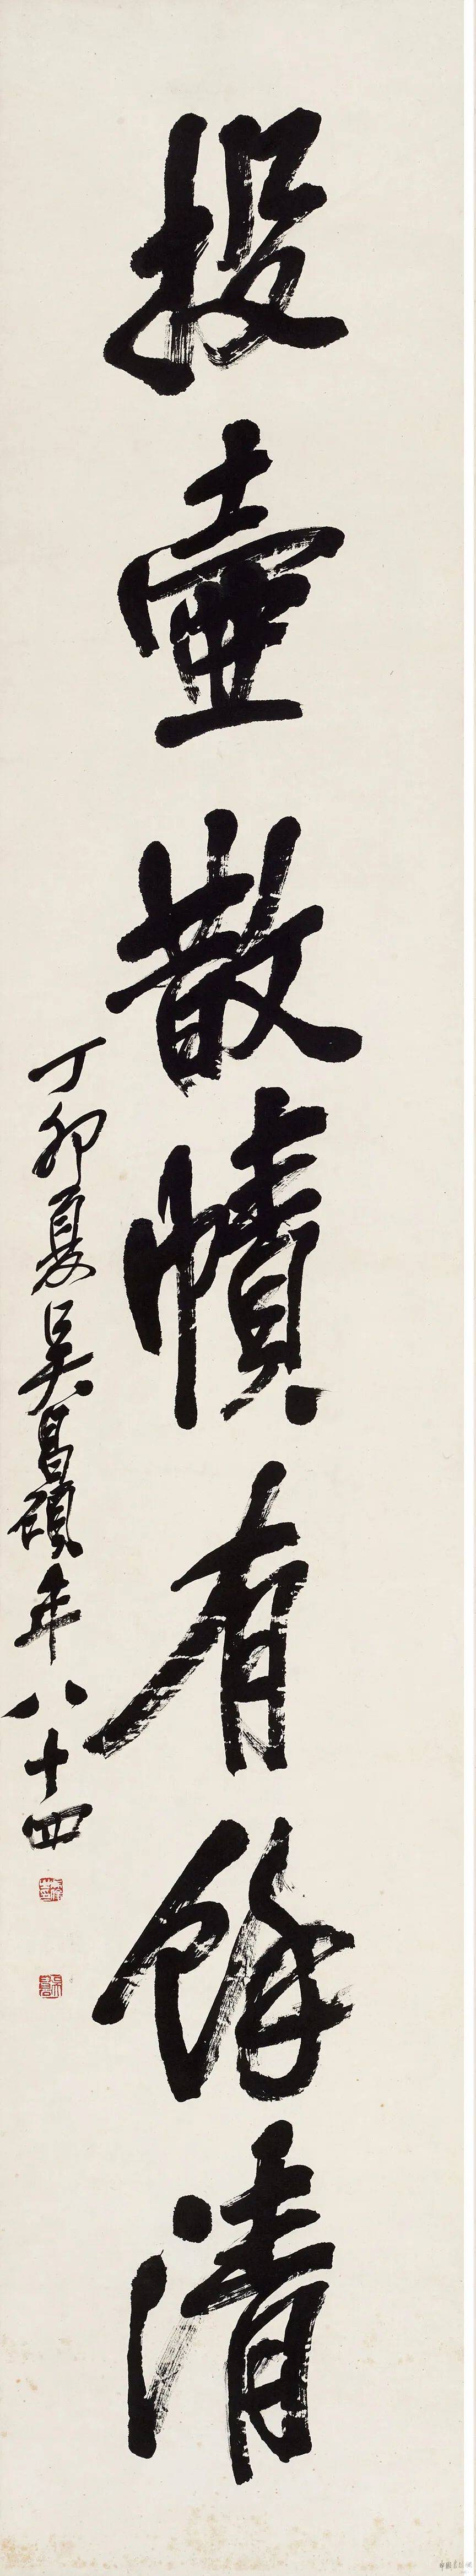 投壺散帙有餘清
丁卯夏吳昌碩年八十四